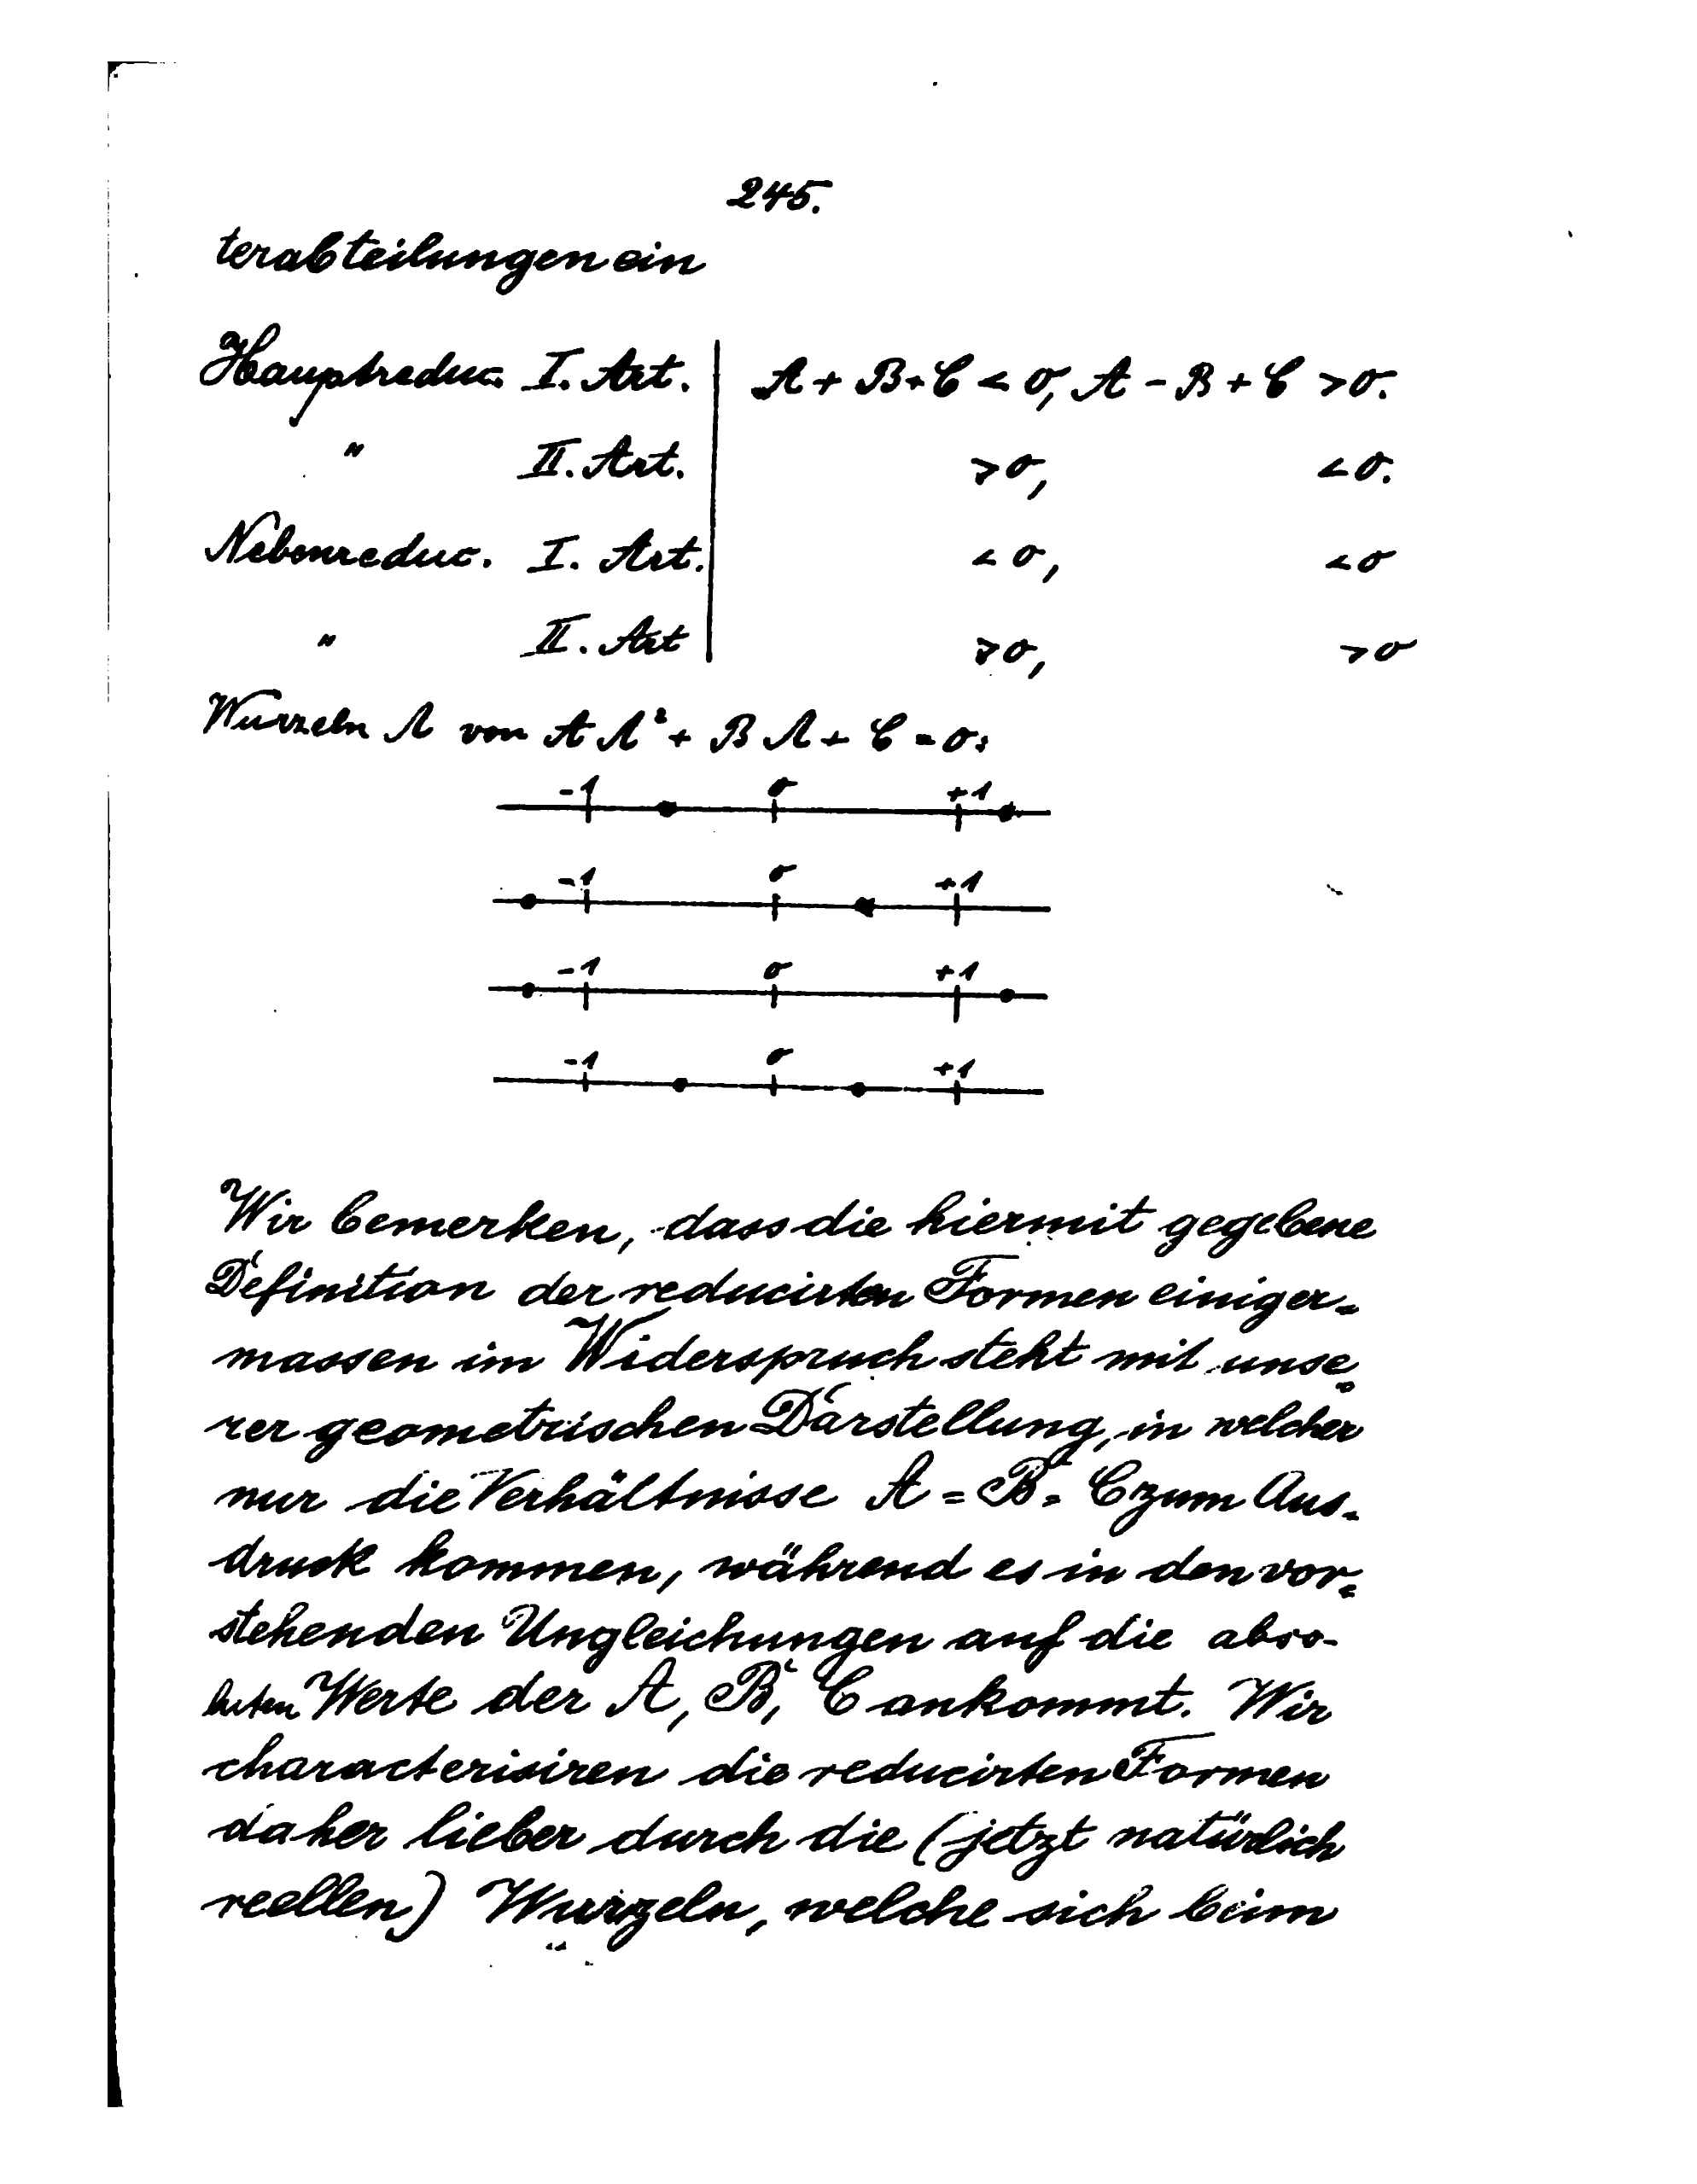 245.
terabteilungen ein
Hauptreduc. I. Art. | A + B + C < 0, A - B + C > 0.
" II. Art. | > 0, < 0.
Nebenreduc. I. Art. | < 0, < 0
" II. Art | > 0, > 0
Wurzeln Λ von A Λ² + B Λ + C = 0:
-1 0 +1
-1 0 +1
-1 0 +1
-1 0 +1
Wir bemerken, dass die hiermit gegebene
Definition der reducirten Formen einiger=
massen im Widerspruch steht mit unse=
rer geometrischen Darstellung, in welcher
nur die Verhältnisse A = B = C zum Aus=
druck kommen, während es in den vor=
stehenden Ungleichungen auf die abso-
luten Werte der A, B, C ankommt. Wir
characterisiren die reducirten Formen
daher lieber durch die (jetzt natürlich
reellen) Wurzeln, welche sich beim